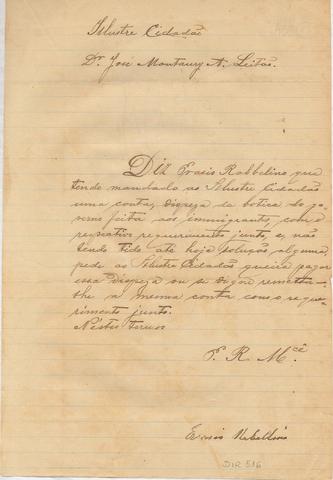 Illustre Cidadão
Dr. José Montaury A. Leitão.
Diz Ernsis Rabbelino que
tendo mandado ao Illustre Cidadão
uma conta, dispeza da botica do go-
verno feita aos immigrante, com o
respectivo requerimento junto e, não
tendo tido até hoje solução alguma,
pede ao Illustre Cidadão queira pagar
essa dispeza ou se digne remetter-
lhe a mesma conta com o reque-
rimento junto.
Nestes termos
P. R. M.cê
Rabellino
DIR 516